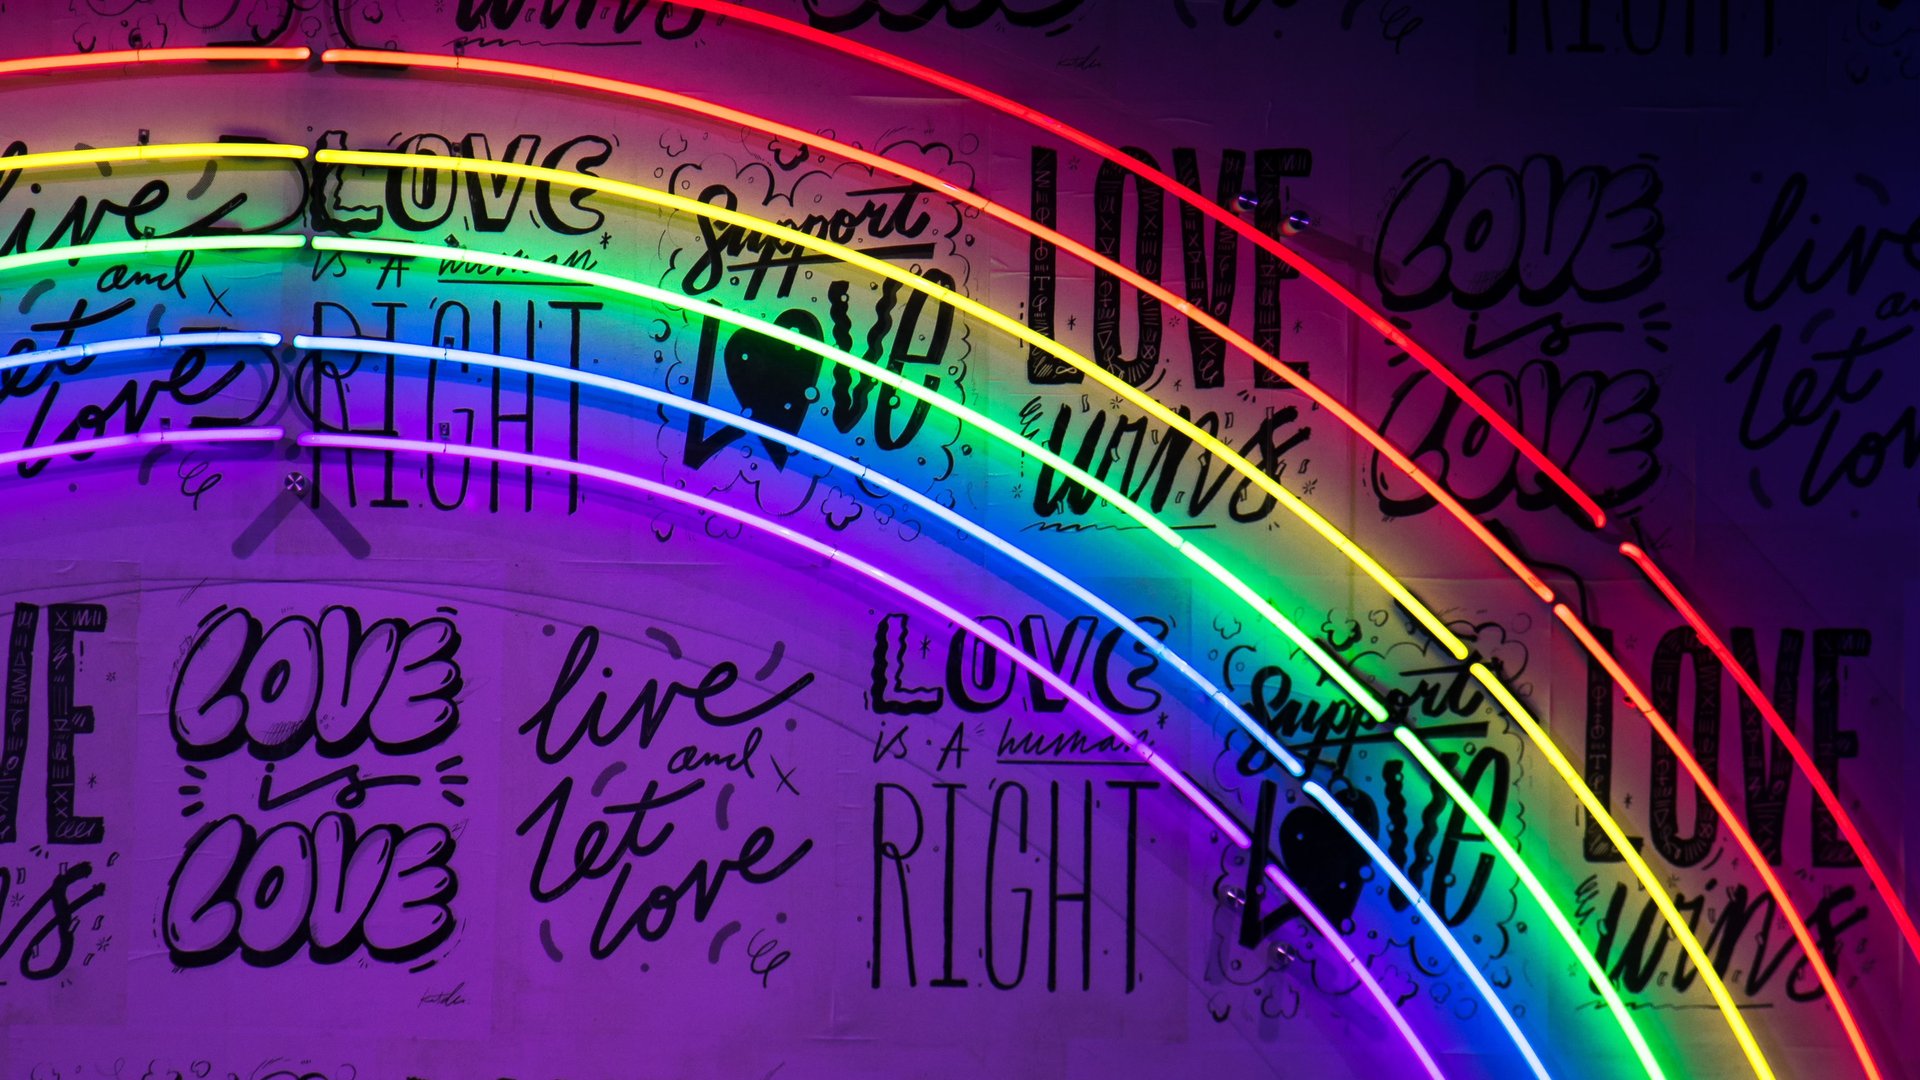 wins
RIGHT
live
and
let
love
LOVE
is A human
RIGHT
Support
LOVE
LOVE
wins
LOVE
is
LOVE
live
let
LOVE
is
LOVE
live
and
let
love
LOVE
is A human
RIGHT
Support
LOVE
LOVE
wins